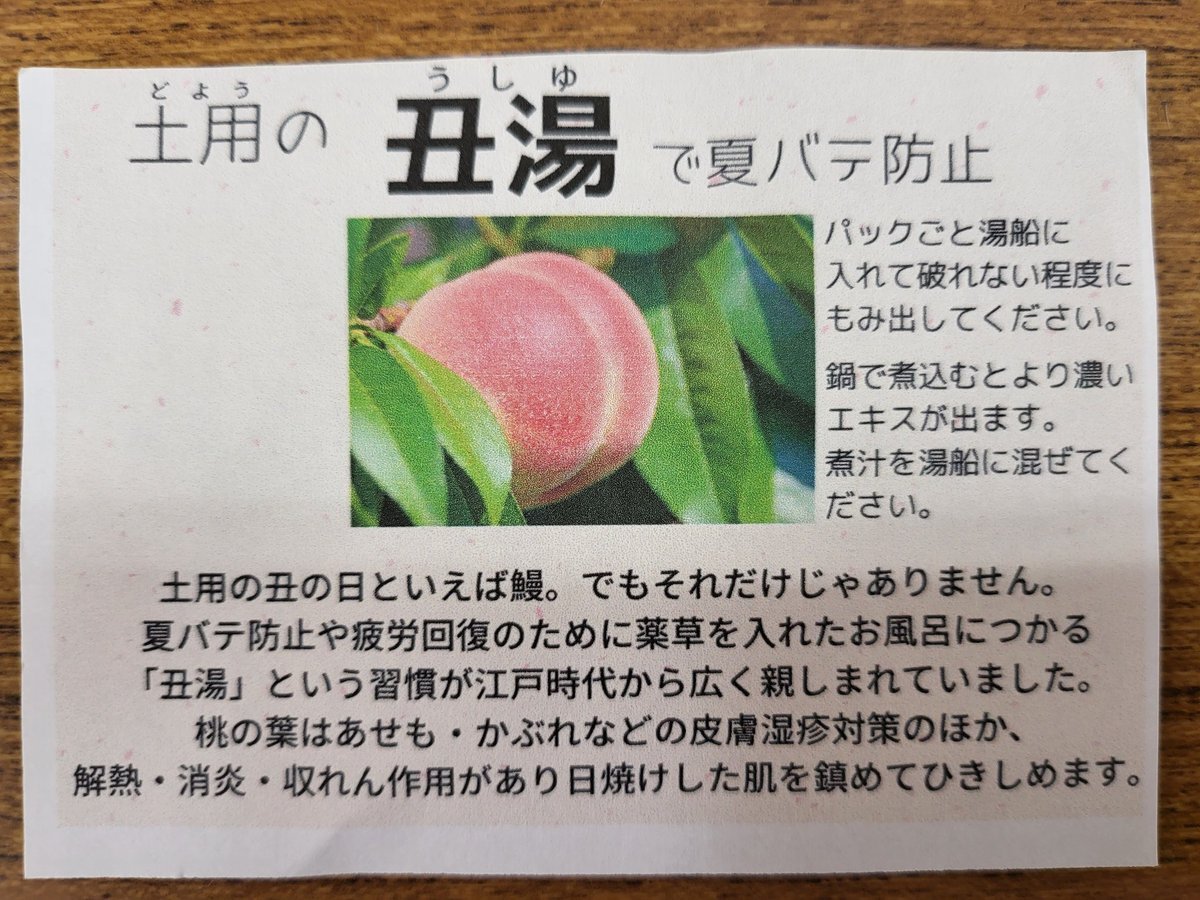 どよう
うしゆ
土用の 丑湯 で夏バテ防止
パックごと湯船に
入れて破れない程度に
もみ出してください。
鍋で煮込むとより濃い
エキスが出ます。
煮汁を湯船に混ぜてく
ださい。
土用の丑の日といえば鰻。でもそれだけじゃありません。
夏バテ防止や疲労回復のために薬草を入れたお風呂につかる
「丑湯」という習慣が江戸時代から広く親しまれていました。
桃の葉はあせも・かぶれなどの皮膚湿疹対策のほか、
解熱・消炎・収れん作用があり日焼けした肌を鎮めてひきしめます。